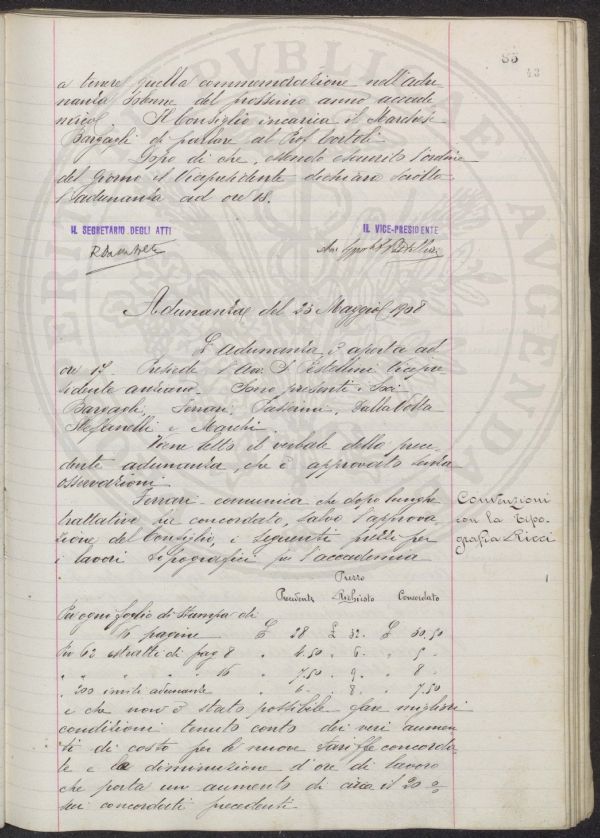 85
43
a tenere quella commemorazione nell'adu-
nanza solenne del prossimo anno accade
mico. Il Consiglio incarica il Marchese
Bargagli di parlare al Prof. Bertoli.
Dopo di che, essendo esaurito l'ordine
del giorno il Vicepresidente dichiara sciolta
l'adunanza ad ore 18.
IL SEGRETARIO DEGLI ATTI
IL VICE-PRESIDENTE
Adunanza del 23 Maggio 1908
L'adunanza è aperta ad
ore 17. Presiede l'Avv. Pestellini Vicepre
sidente anziano. Sono presenti i Soci
Bargagli, Ferrari, Passerini, Dalla Volta
Stefanelli e Marchi.
Viene letto il verbale della prece
dente adunanza, che è approvato senza
osservazioni.
Ferrari - comunica che dopo lunghe
trattative ha concordato, salvo l'approva
zione del Consiglio, i seguenti prezzi per
i lavori tipografici per l'accademia
Convenzioni
con la Tipo-
grafia Ricci
Prezzo
Precedente Richiesto Concordato
Per ogni foglio di stampa di
16 pagine £ 28 £ 32. £ 30,50
Per 62 estratti di pag 8 " 4.50 " 6. " 5 "
" " " " 16 " 7.50 " 9. " 8 "
" 200 inviti adunante " 6. " 8 " 7.50
e che non è stato possibile fare migliori
condizioni tenuto conto dei veri aumen
ti di costo per le nuove tariffe concorda-
te e la diminuzione d'ore di lavoro
che porta un aumento di circa il 20 %
sui concordati precedenti.